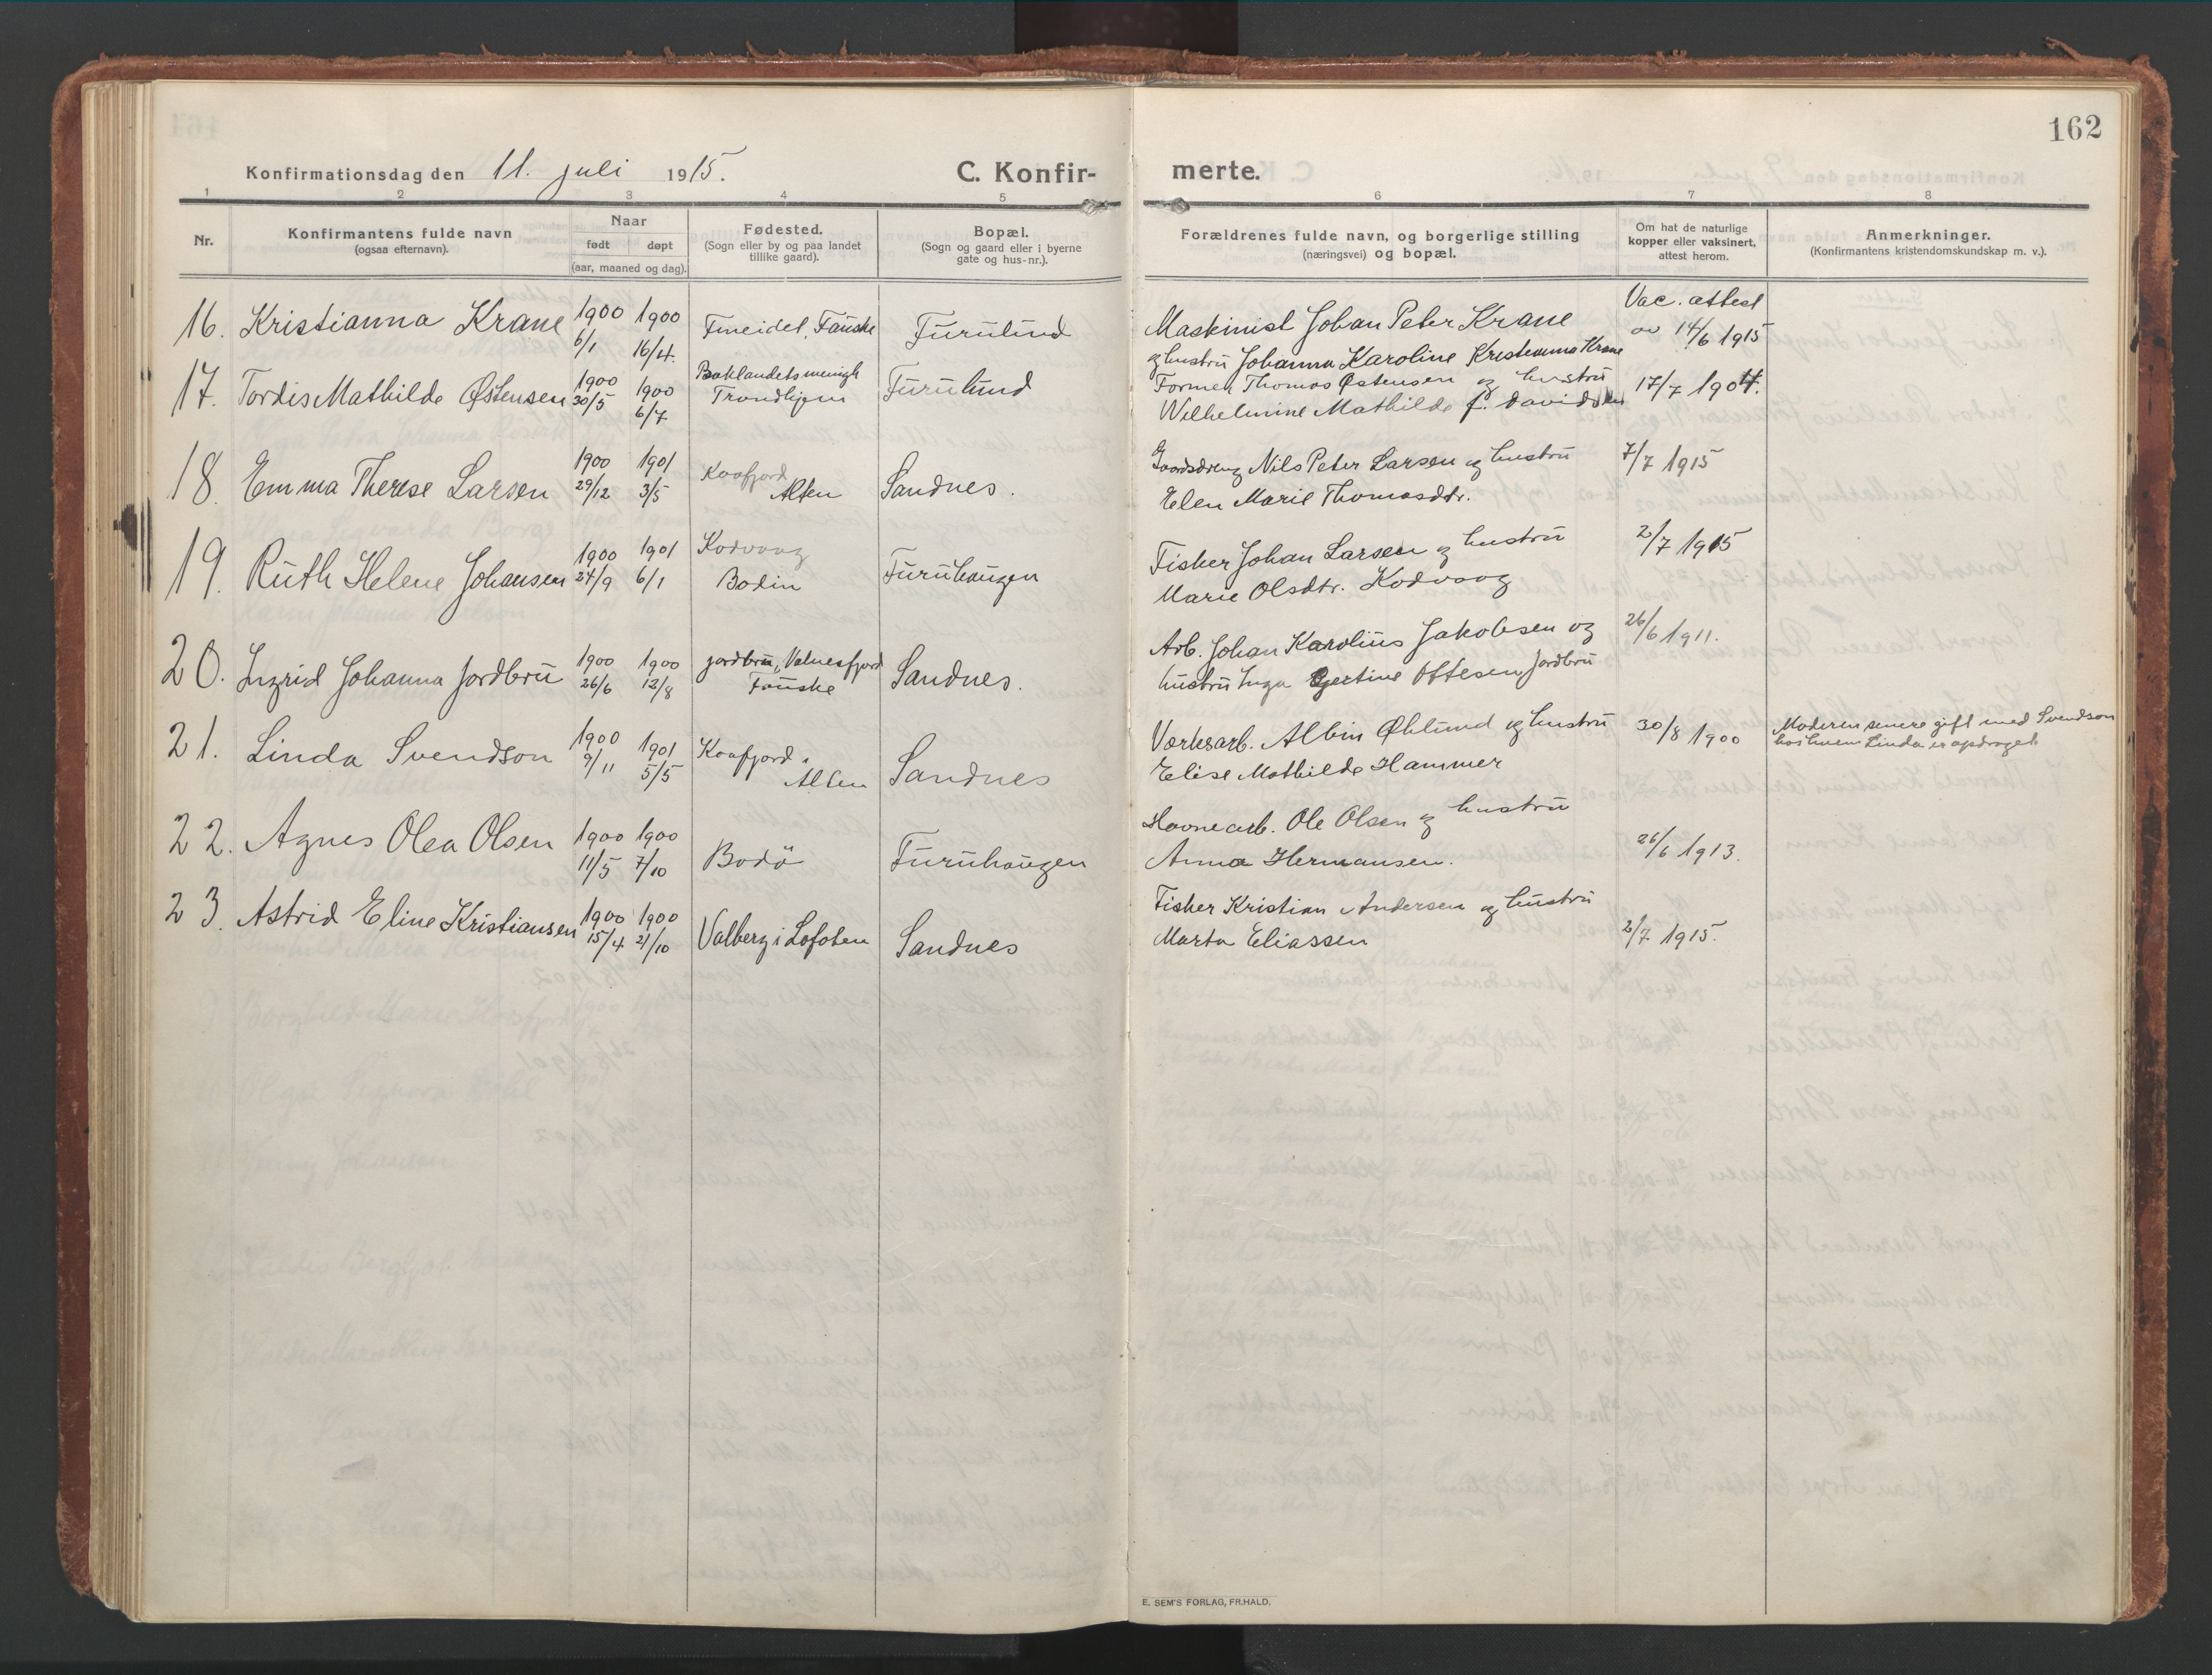 162
Konfirmationsdag den 11. juli 1915.
C. Konfir-
merte.
1 2 3 4 5 6 7 8
Nr.
Konfirmantens fulde navn
(ogsaa efternavn).
Naar
født døpt
(aar, maaned og dag).
Fødested.
(Sogn eller by og paa landet
tillike gaard).
Bopæl.
(Sogn og gaard eller i byerne
gate og hus-nr.).
Forældrenes fulde navn, og borgerlige stilling
(næringsvei) og bopæl.
Om hat de naturlige
kopper eller vaksinert,
attest herom.
Anmerkninger.
(Konfirmantens kristendomskundskap m. v.).
16. Kristianna Krane 1900 6/1 1900 16/4. Fineidet, Fauske Furulund
Maskinist Johan Peter Krane
og hustru Johanna Karoline Kristianna Krane
Vac. attest
av 14/6 1915
17. Tordis Mathilde Østensen 1900 30/5 1900 6/7 Baklandets menigh Trondhjem Furulund
Formen Thomas Østensen og hustru
Wilhelmine Mathilde f. Davidsen
17/7 1904.
18. Emma Therese Larsen 1900 29/12 1901 3/5 Kaafjord Alten Sandnes.
Gaardsdreng Nils Peter Larsen og hustru
Elen Marie Thomasdtr.
7/7 1915
19. Ruth Helene Johansen 1900 24/9 1901 6/1 Kodvaag Bodin Furuhaugen
Fisker Johan Larsen og hustru
Marie Olsdtr. Kodvaag
2/7 1915
20. Ingrid Johanna Jordbru 1900 26/6 1900 12/8 Jordbru, Valnesfjord Fauske Sandnes.
Arb. Johan Karolius Jakobsen og
hustru Inga Gjertine Ottesen Jordbru
26/6 1911.
21. Linda Svendson 1900 9/11 1901 5/5 Kaafjord i Alten Sandnes
Værksarb. Albin Øhlund og hustru
Elise Mathilde Hammer
30/8 1900
Moderen senere gift med Svendson
hos hvem Linda er opdraget
22. Agnes Olea Olsen 1900 11/5 1900 7/10 Bodö Furuhaugen
Havnearb. Ole Olsen og hustru
Anna Hermansen.
26/6 1913.
23. Astrid Eline Kristiansen 1900 15/4 1900 21/10 Valberg i Lofoten Sandnes
Fisker Kristian Andersen og hustru
Marta Eliassen
2/7 1915.
E. SEM'S FORLAG, FR.HALD.